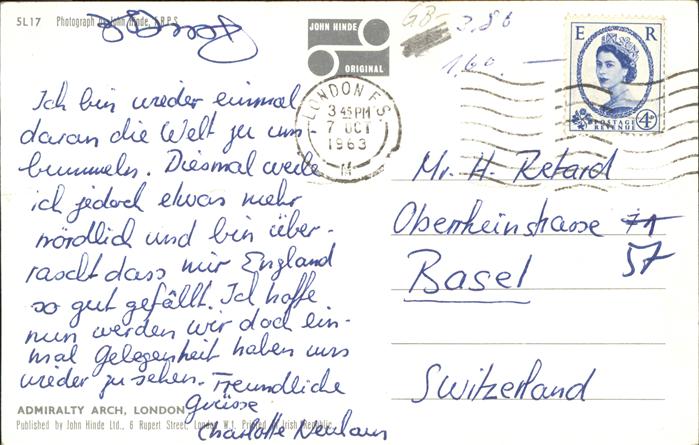 5L17 Photograph by John Hinde, F.R.P.S.
JOHN HINDE
ORIGINAL
GB-
3,86
1,60
E R
POSTAGE
REVENUE
4D
LONDON F.S.
3 45 PM
7 OCT
1963
Ich bin wieder einmal
daran die Welt zu um
bummeln. Diesmal weile
ich jedoch etwas mehr
nördlich und bin über-
rascht dass mir England
so gut gefällt. Ich hoffe
nun werden wir doch ein-
mal Gelegenheit haben uns
wieder zu sehen. Freundliche
Grüsse
Charlotte
Mr. H. Retard
Oberrheinstrasse 71
57
Basel
Switzerland
ADMIRALTY ARCH, LONDON
Published by John Hinde Ltd., 6 Rupert Street, London, W.1. Printed in Irish Republic.